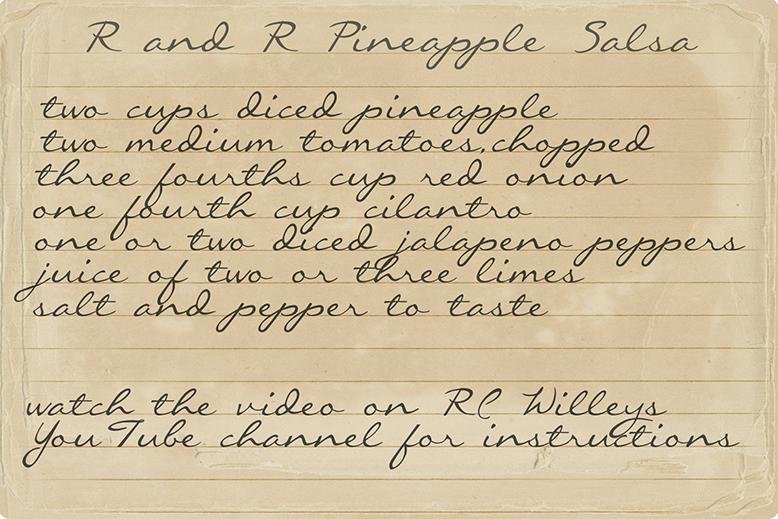 R and R Pineapple Salsa
two cups diced pineapple
two medium tomatoes,chopped
three fourths cup red onion
one fourth cup cilantro
one or two diced jalapeno peppers
juice of two or three limes
salt and pepper to taste
watch the video on RC Willeys
YouTube channel for instructions